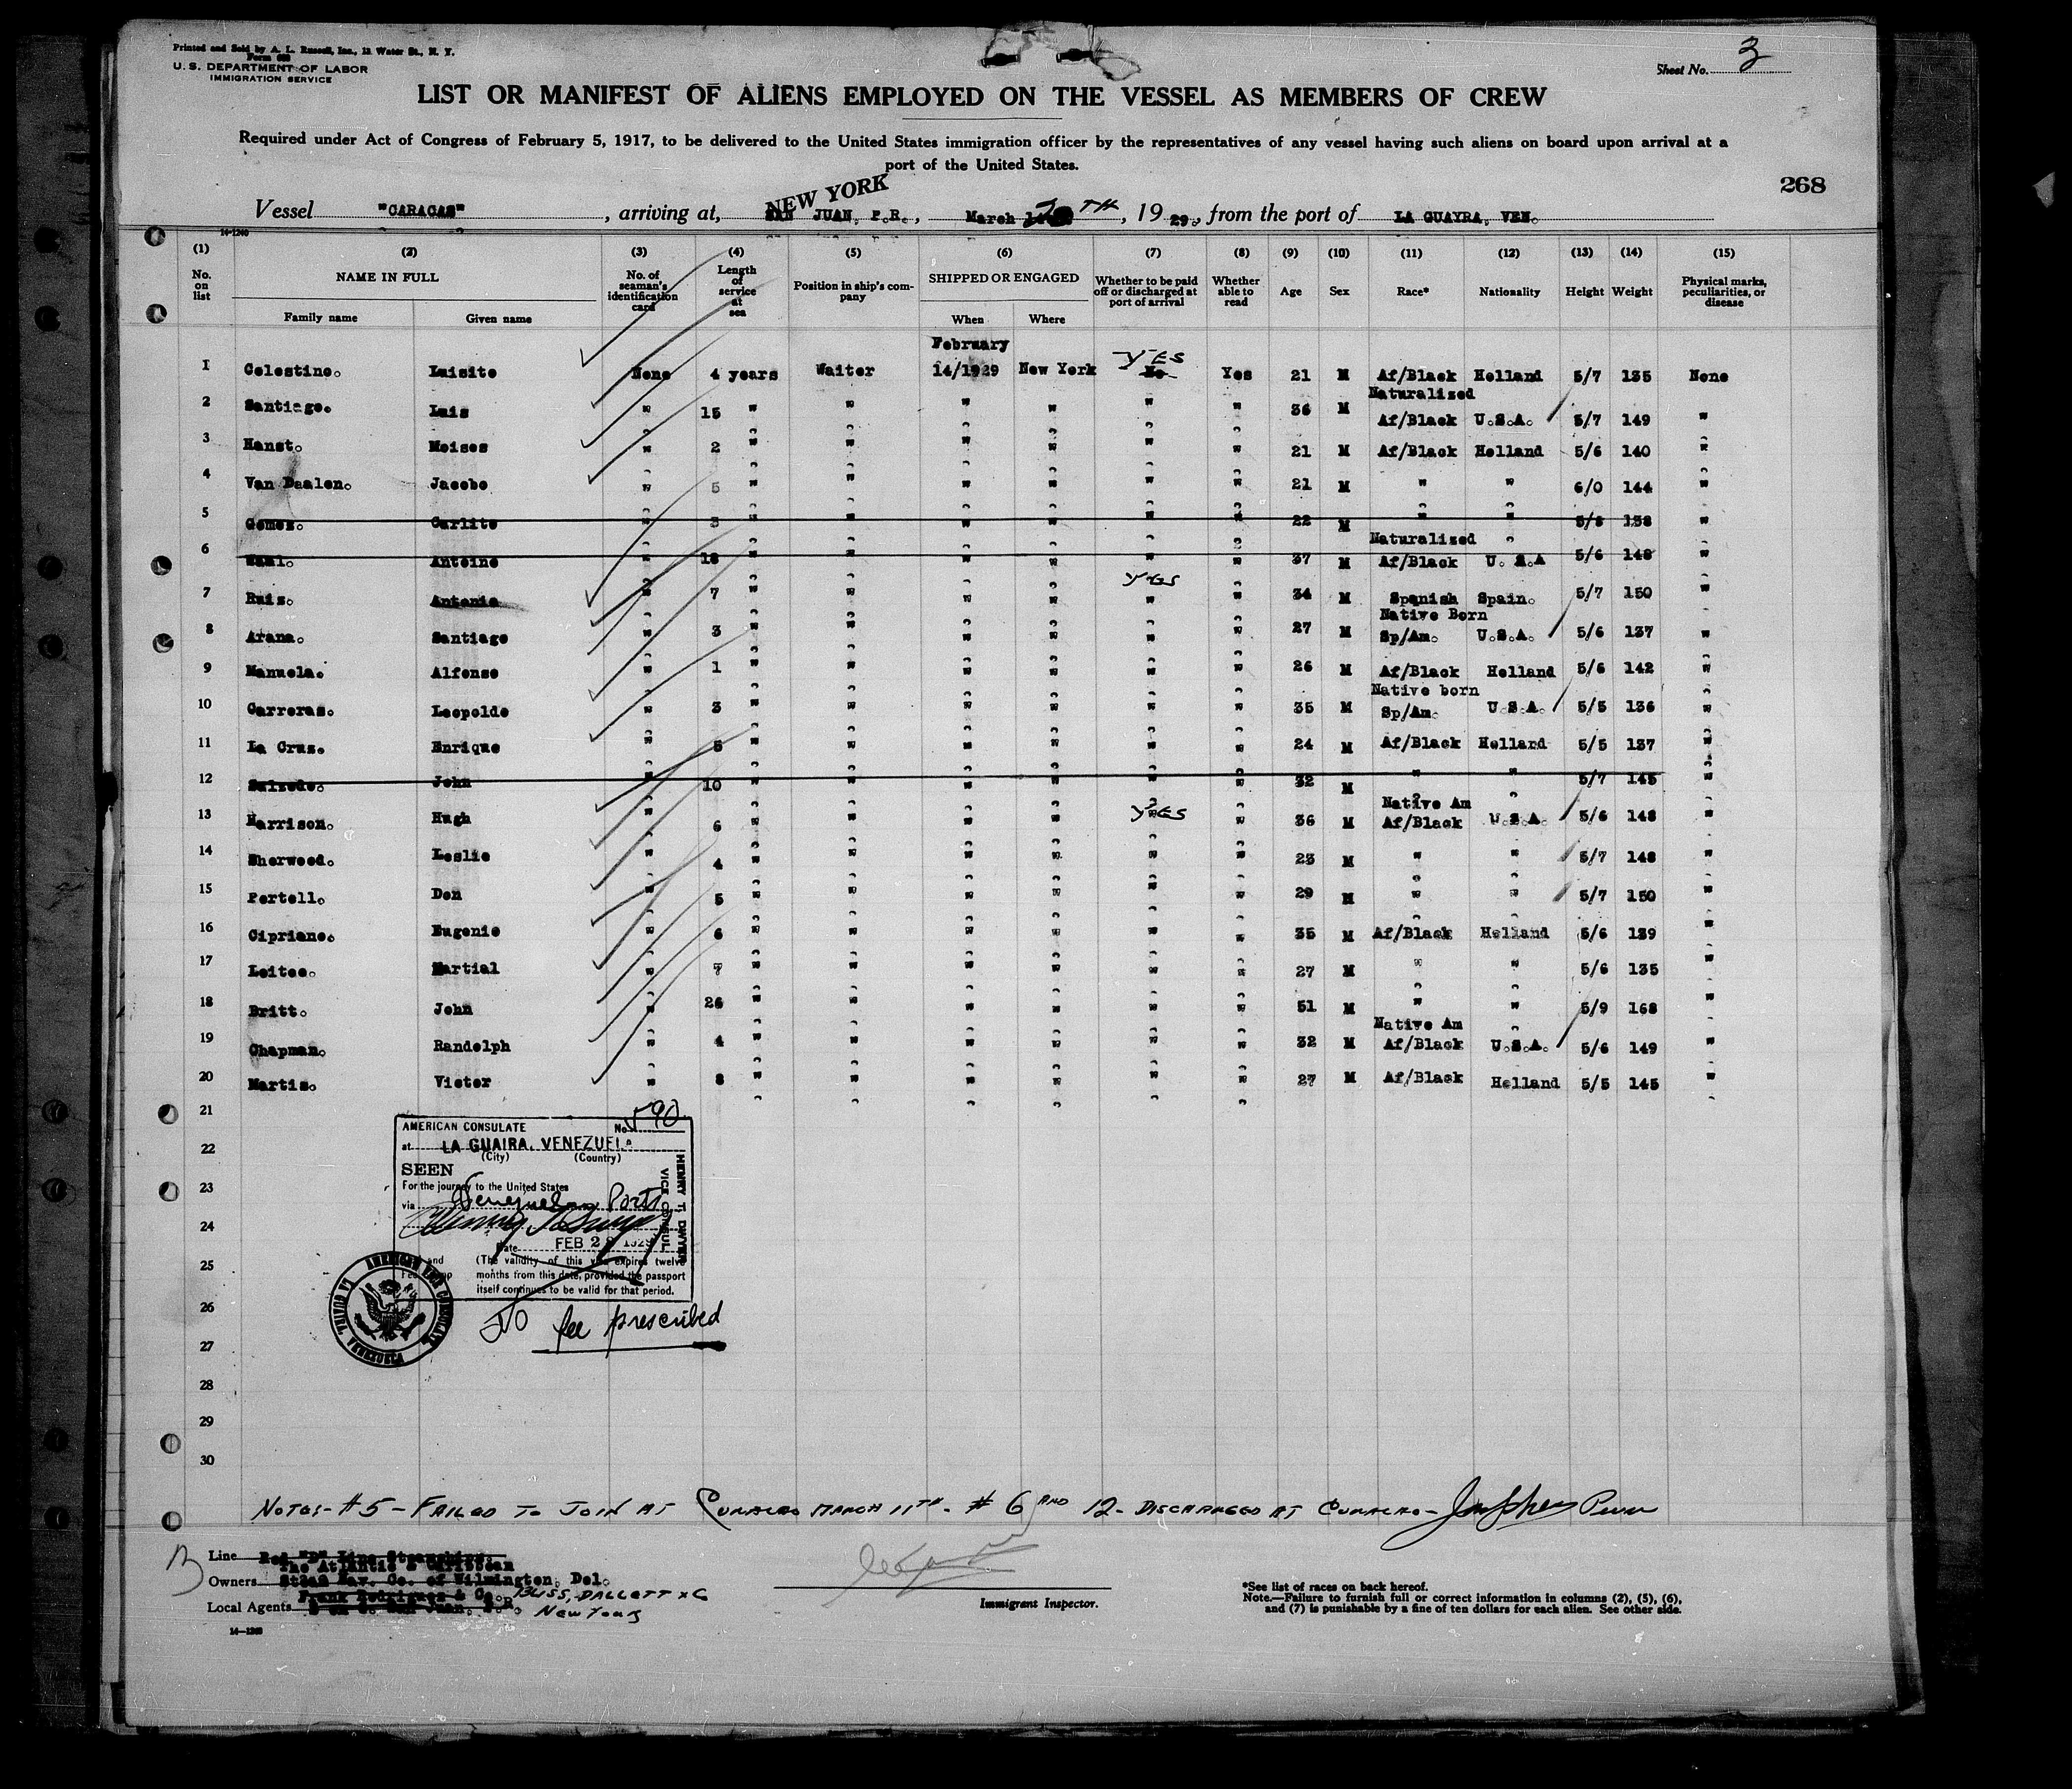 Printed and Sold by A. L. Russell, Inc., 12 Water St., N. Y.
U. S. DEPARTMENT OF LABOR
IMMIGRATION SERVICE
Sheet No. 3
LIST OR MANIFEST OF ALIENS EMPLOYED ON THE VESSEL AS MEMBERS OF CREW
Required under Act of Congress of February 5, 1917, to be delivered to the United States immigration officer by the representatives of any vessel having such aliens on board upon arrival at a
port of the United States.
268
NEW YORK
Vessel "CARACAS", arriving at, SAN JUAN, P.R., March TH, 19 29., from the port of LA GUAYRA, VEN.
14-1240
(1) (2) (3) (4) (5) (6) (7) (8) (9) (10) (11) (12) (13) (14) (15)
No. on list NAME IN FULL No. of seaman's identification card Length of service at sea Position in ship's company SHIPPED OR ENGAGED Whether to be paid off or discharged at port of arrival Whether able to read Age Sex Race* Nationality Height Weight Physical marks, peculiarities, or disease
Family name Given name When Where
February
YES
1 Celestino. Luisito None 4 years Waiter 14/1929 New York No Yes 21 M Af/Black Holland 5/7 135 None
Naturalized
2 Santiago. Luis " 15 " " " " " " 36 M Af/Black U.S.A. 5/7 149 "
3 Hanst. Moises " 2 " " " " " " 21 M Af/Black Holland 5/6 140 "
4 Van Daalen. Jacobo " 5 " " " " " " 21 M " " 6/0 144 "
5 Gomez. Carlito " 3 " " " " " " 22 M " " 5/8 138 "
Naturalized
6 Antoine " 18 " " " " " " 37 M Af/Black U.S.A 5/6 148 "
YES
7 Ruiz. Antonio " 7 " " " " " " 34 M Spanish Spain. 5/7 150 "
Native Born
8 Arana. Santiago " 3 " " " " " " 27 M Sp/Am. U.S.A. 5/6 137 "
9 Manuela. Alfonso " 1 " " " " " " 26 M Af/Black Holland 5/6 142 "
Native born
10 Carreras. Leopoldo " 3 " " " " " " 35 M Sp/Am. U.S.A. 5/5 136 "
11 La Cruz. Enrique " 5 " " " " " " 24 M Af/Black Holland 5/5 137 "
12 Salzedo. John " 10 " " " " " " 32 M " " 5/7 145 "
Native Am
13 Harrison. Hugh " 6 " " " " YES " 36 M Af/Black U.S.A. 5/6 148 "
14 Sherwood. Leslie " 4 " " " " " " 23 M " " 5/7 148 "
15 Portell. Don " 5 " " " " " " 29 M " " 5/7 150 "
16 Cipriano. Eugenio " 6 " " " " " " 35 M Af/Black Holland 5/6 139 "
17 Leitoe. Martial " 7 " " " " " " 27 M " " 5/6 135 "
18 Britt. John " 26 " " " " " " 51 M " " 5/9 168 "
Native Am
19 Chapman. Randolph " 4 " " " " " " 32 M Af/Black U.S.A. 5/6 149 "
20 Martis. Victor " 8 " " " " " " 27 M Af/Black Holland 5/5 145 "
21
22
23
24
25
26
27
28
29
30
AMERICAN CONSULATE No. 590
at LA GUAIRA, VENEZUELA
(City) (Country)
SEEN
For the journey to the United States
via Venezuelan Ports
HENRY T. DWYER
VICE CONSUL
Date FEB 28 1929
(The validity of this visa expires twelve
months from this date, provided the passport
itself continues to be valid for that period.
AMERICAN CONSULATE LA GUAIRA VENEZUELA
No fee prescribed
NOTES- #5 - FAILED TO JOIN AT CURACAO MARCH 11TH - #6 AND 12- DISCHARGED AT CURACAO-
Line Red "D" Line Steamships.
The Atlantic & Caribbean
Owners Steam Nav. Co. of Wilmington, Del.
Frank Rodriguez & Co. BLISS, DALLETT & C
Local Agents San Juan, P.R. New York
14-1240
Immigrant Inspector.
*See list of races on back hereof.
Note.—Failure to furnish full or correct information in columns (2), (5), (6),
and (7) is punishable by a fine of ten dollars for each alien. See other side.